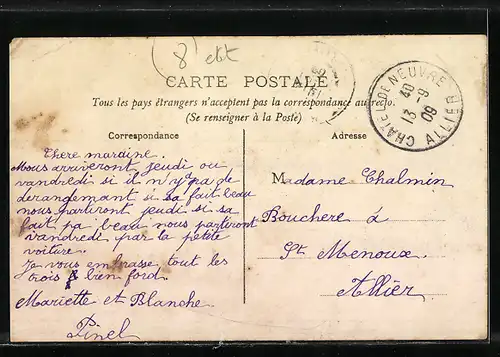 8 ebt
CARTE POSTALE
Tous les pays étrangers n'acceptent pas la correspondance au recto.
(Se renseigner à la Poste)
Correspondance
Adresse
CHATEL DE NEUVRE
10
13 -9
09
ALLIER
Chere maraine.
Nous arriveront jeudi ou
vandredi si il n'y a pa de
derangemant si sa fait beau
nous partiront jeudi si sa
fait pa beau nous partiront
vandredi par la petite
voiture.
Je vous embrasse tout les
trois bien ford.
Mariette et Blanche
Pinel
Madame Chalmin
Bouchere à
St Menoux
Allier